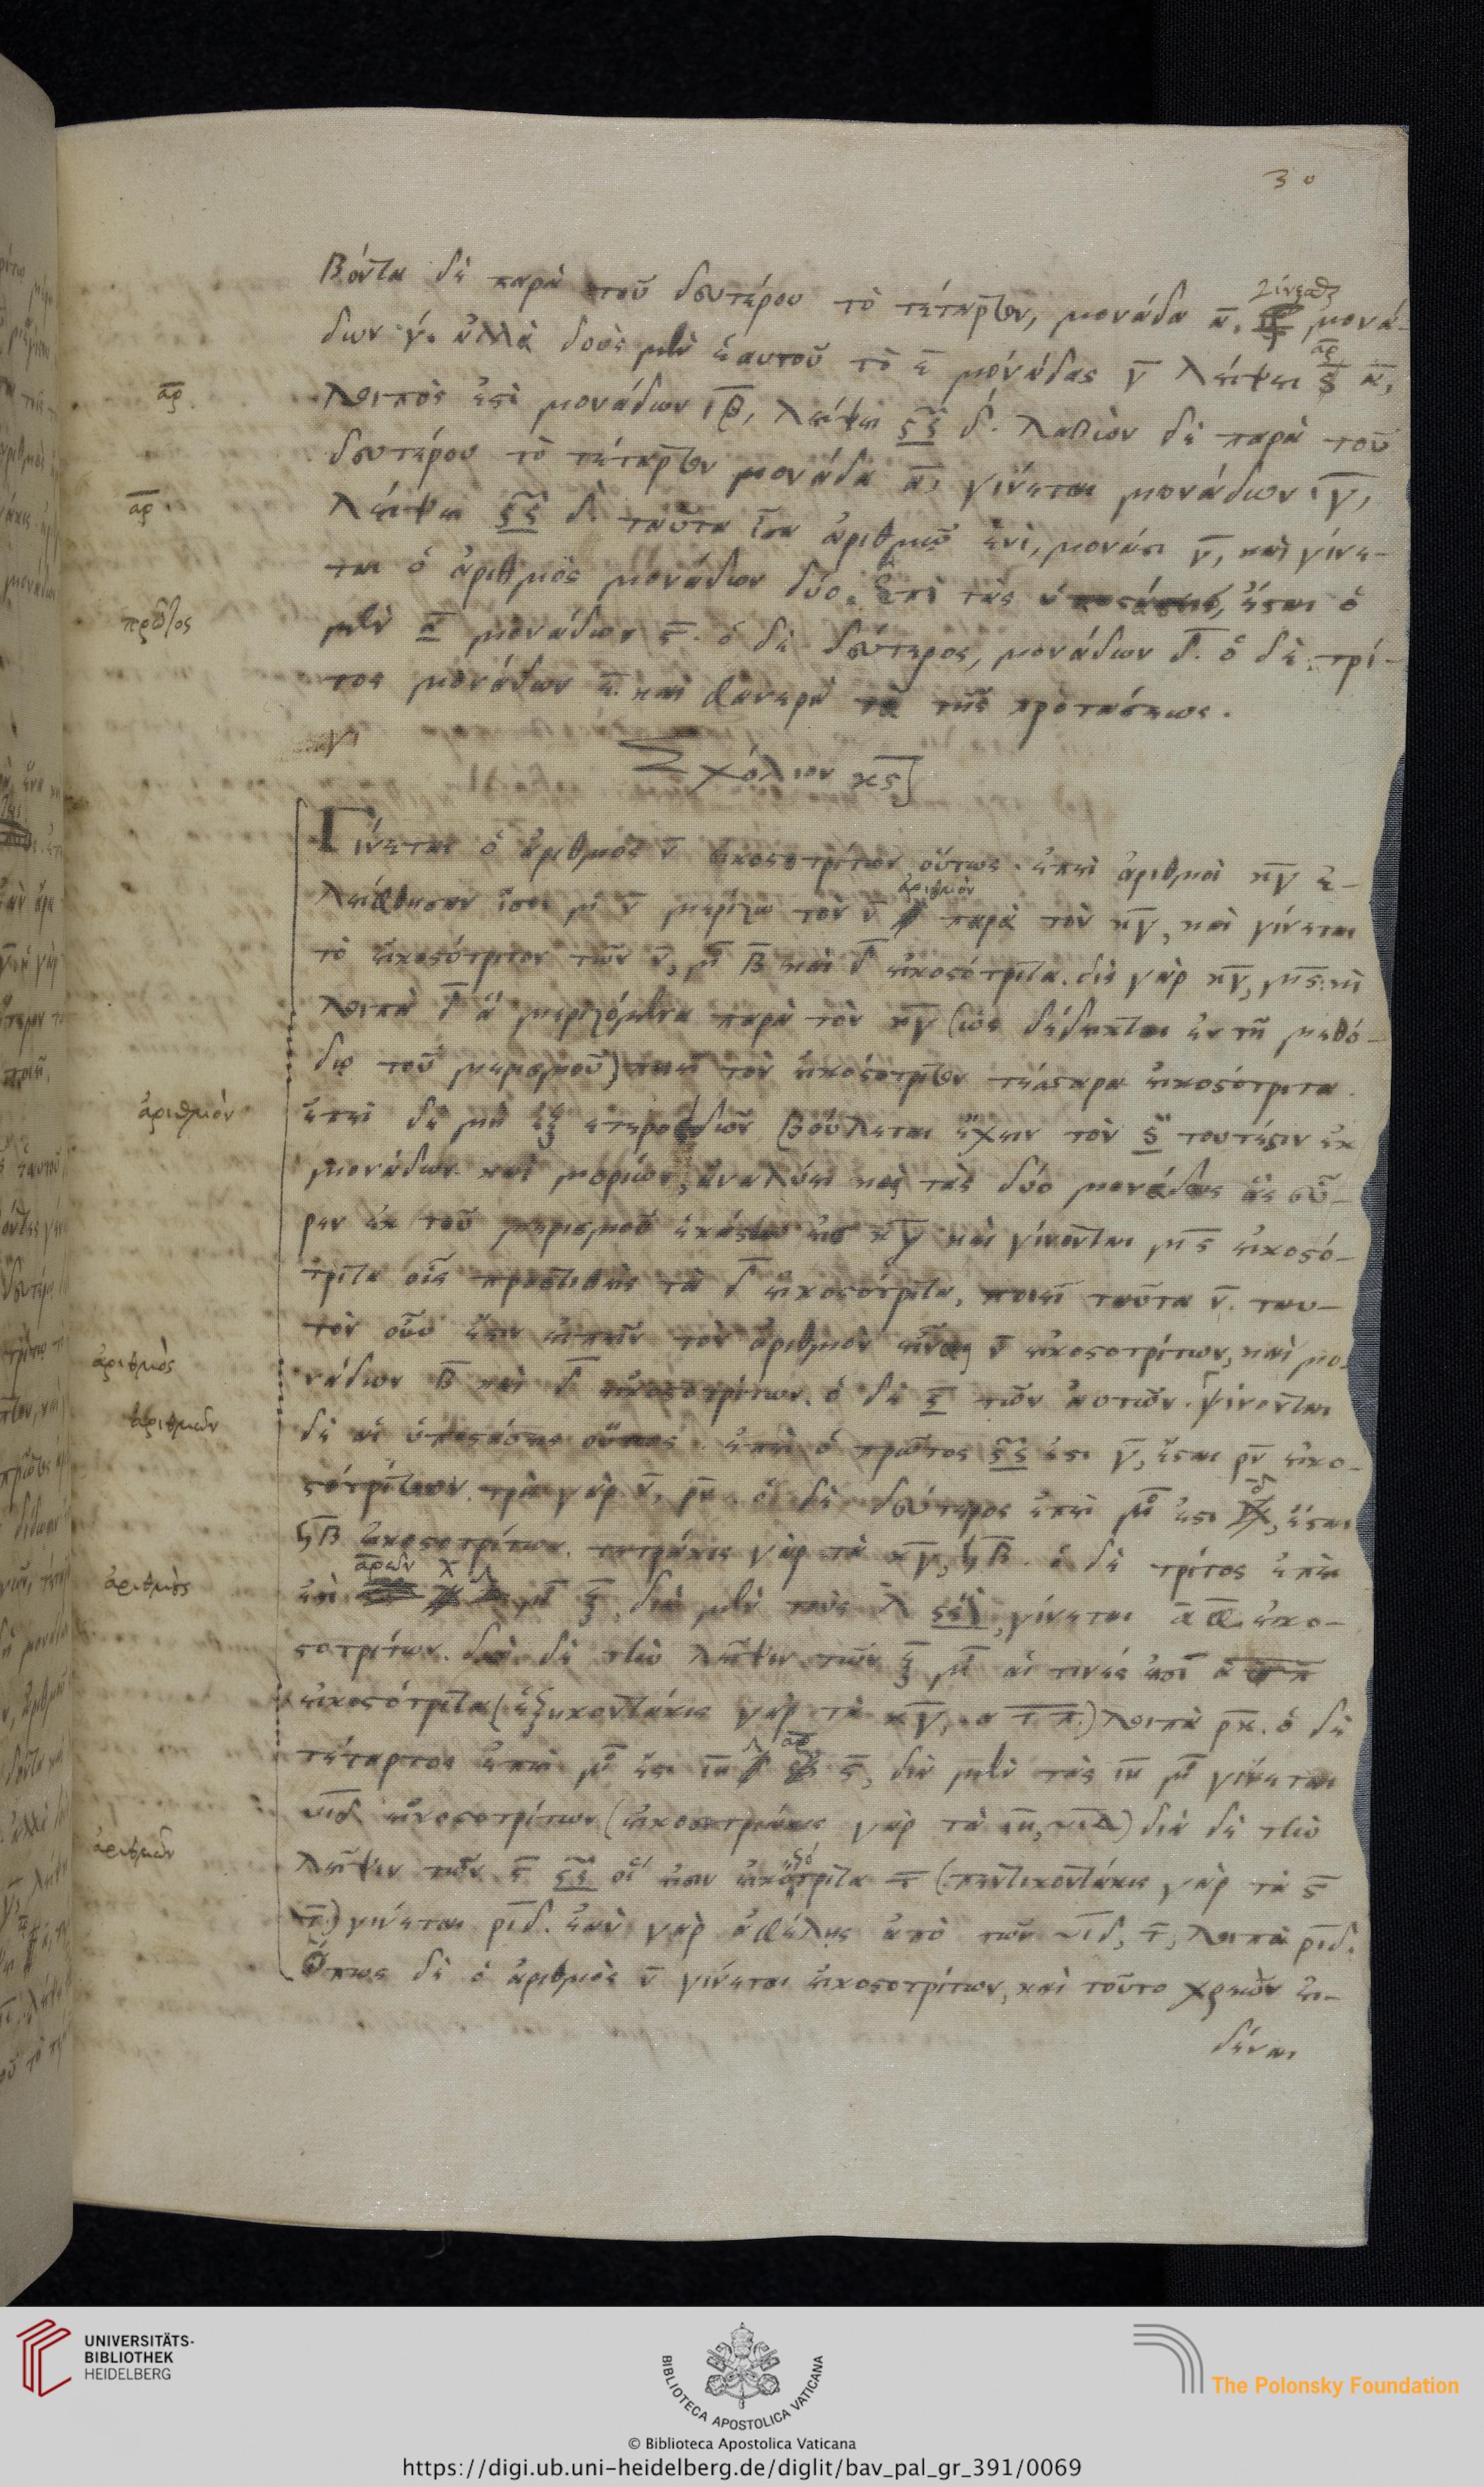 30
βόντα δὲ παρὰ τοῦ δευτέρου τὸ τέταρτον, μονάδα α̅, γίνεσθαι μονά-
δων γ. ἀλλὰ δοὺς μὲν ἑαυτοῦ τὸ ε̅ μονάδας γ̅ λείψει α̅ρ α̅,
λοιπός ἐστι μονάδων ιβ̅, λείψει ςς δ. λαβὼν δὲ παρὰ τοῦ
α̅ρ
δευτέρου τὸ τέταρτον μονάδα α̅, γίνεται μονάδων ιγ̅,
λείψει ςς δ. ταῦτα ἴσα ἀριθμῷ ἑνὶ, μονάσι γ̅, καὶ γίνε-
α̅ρ
ται ὁ ἀριθμὸς μονάδων δύο. ἐπὶ τὰς ὑποστάσεις, ἔσται ὁ
μὲν α̅ μονάδων ς̅. ὁ δὲ δεύτερος, μονάδων δ̅. ὁ δὲ τρί-
πρῶτος
τος μονάδων ε̅. καὶ φανερὰ τὰ τῆς προτάσεως.
Σχόλιον κς
Γίνεται ὁ ἀριθμὸς ν̅ εἰκοστοτρίτων οὕτως. ἐπεὶ ἀριθμοὶ κγ̅ ἐ-
λείφθησαν ἴσοι μ̊ ν̅ μερίζω τὸν ν̅ ἀριθμὸν παρὰ τὸν κγ̅, καὶ γίνεται
τὸ εἰκοστότριτον τῶν ν̅, μ̊ β̅ καὶ δ̅ εἰκοστότριτα. δὶς γὰρ κγ̅, μς. καὶ
λοιπὰ δ̅ ἃ μεριζόμενα παρὰ τὸν κγ̅ (ὡς δέδεικται ἐν τῇ μεθό-
δῳ τοῦ μερισμοῦ) ποιεῖ τὸν εἰκοστότριτον τέσσαρα εἰκοστότριτα.
ἐπεὶ δὲ μὴ ἐξ ἑτεροειδῶν βούλεται ἔχειν τὸν ς τουτέστιν ἐκ
ἀριθμὸν
μονάδων καὶ μορίων, ἀναλύει καὶ τὰς δύο μονάδας ἃς εὗ-
ρεν ἐκ τοῦ μερισμοῦ ἑκάστην εἰς κγ̅ καὶ γίνονται μς̅ εἰκοστό-
τριτα οἷς προστιθεὶς τὰ δ̅ εἰκοστότριτα, ποιεῖ ταῦτα ν̅. ταυ-
τὸν οὖν ἔστιν εἰπεῖν τὸν ἀριθμὸν εἶναι ν̅ εἰκοστοτρίτων, καὶ μο-
ἀριθμὸς
νάδων β̅ καὶ δ̅ εἰκοστοτρίτων. ὁ δὲ ς τῶν αὐτῶν. γίνονται
δὲ αἱ ὑποστάσεις οὕτως. ἐπεὶ ὁ πρῶτος ςς ἐστι γ̅, ἔσται ρν̅ εἰκο-
ἀριθμῶν
στοτρίτων. τρὶς γὰρ ν̅, ρν̅. ὁ δὲ δεύτερος ἐπεὶ μ̊ ἐστι δ̅, ἔσται
ϟβ εἰκοστοτρίτων. τετράκις γὰρ τὰ κγ̅, ϟβ̅. ὁ δὲ τρίτος ἐπεὶ
ἀριθμὸς
γίνεται α̅φ̅ εἰκο-
στοτρίτων. διὰ δὲ τὴν λεῖψιν τῶν ξ̅ μ̊ αἵ τινές εἰσι α̅τ̅π̅
εἰκοστότριτα (ἑξηκοντάκις γὰρ τὰ κγ̅, α̅τ̅π̅.) λοιπὰ ρκ̅. ὁ δὲ
τέταρτος ἐπεὶ μ̊ ἐστι ιη̅ ς̅, διὰ μὲν τὰς ιη̅ μ̊ γίνεται
υιδ εἰκοστοτρίτων (εἰκοσιτριάκις γὰρ τὰ ιη̅, υιδ) διὰ δὲ τὴν
ἀριθμῶν
λεῖψιν τῶν ς̅ ςς οἵ εἰσιν εἰκοστότριτα τ̅ (πεντηκοντάκις γὰρ τὰ ς̅
τ̅.) γίνεται ριδ. ἐὰν γὰρ ἀφέλῃς ἀπὸ τῶν υιδ, τ̅, λοιπὰ ριδ.
Ὅπως δὲ ὁ ἀριθμὸς ν̅ γίνεται εἰκοστοτρίτων, καὶ τοῦτο χρεὼν εἰ-
δέναι
UNIVERSITÄTS-
BIBLIOTHEK
HEIDELBERG
BIBLIOTECA APOSTOLICA VATICANA
The Polonsky Foundation
© Biblioteca Apostolica Vaticana
https://digi.ub.uni-heidelberg.de/diglit/bav_pal_gr_391/0069